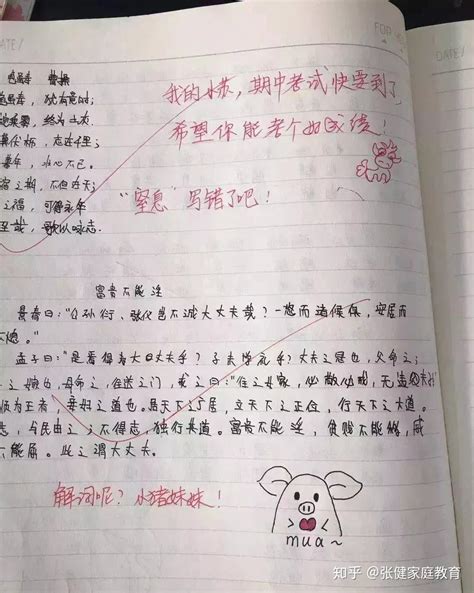 DATE/
FOR
DATE/
龟虽寿 曹操
龟虽寿，犹有竟时；
成土灰。
骥伏枥，志在千里；
暮年，壮心不已。
之期，不但在天；
之福，可得永年
至哉，歌以咏志。
我的小苏，期中考试快要到了
希望你能考个好成绩！
“窒息”写错了吧！
富贵不能淫
景春曰：“公孙衍、张仪岂不诚大丈夫哉？一怒而诸侯惧，安居而
熄。”
孟子曰：“是焉得为大丈夫乎？子未学礼乎？丈夫之冠也，父命之；
之嫁也，母命之，往送之门，戒之曰：“往之女家，必敬必戒，无违夫子
顺为正者，妾妇之道也。居天下之广居，立天下之正位，行天下之大道。
志，与民由之；不得志，独行其道。富贵不能淫，贫贱不能移，威
不能屈。此之谓大丈夫。
解词呢？小猪妹妹！
mua~
知乎 @张健家庭教育